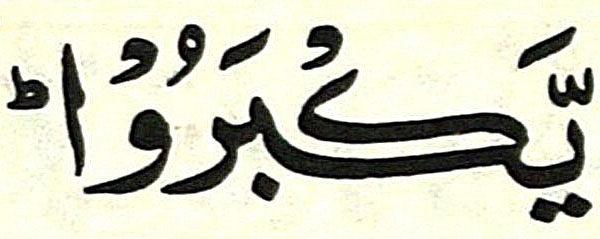 يَّكْبَرُوْاؕ